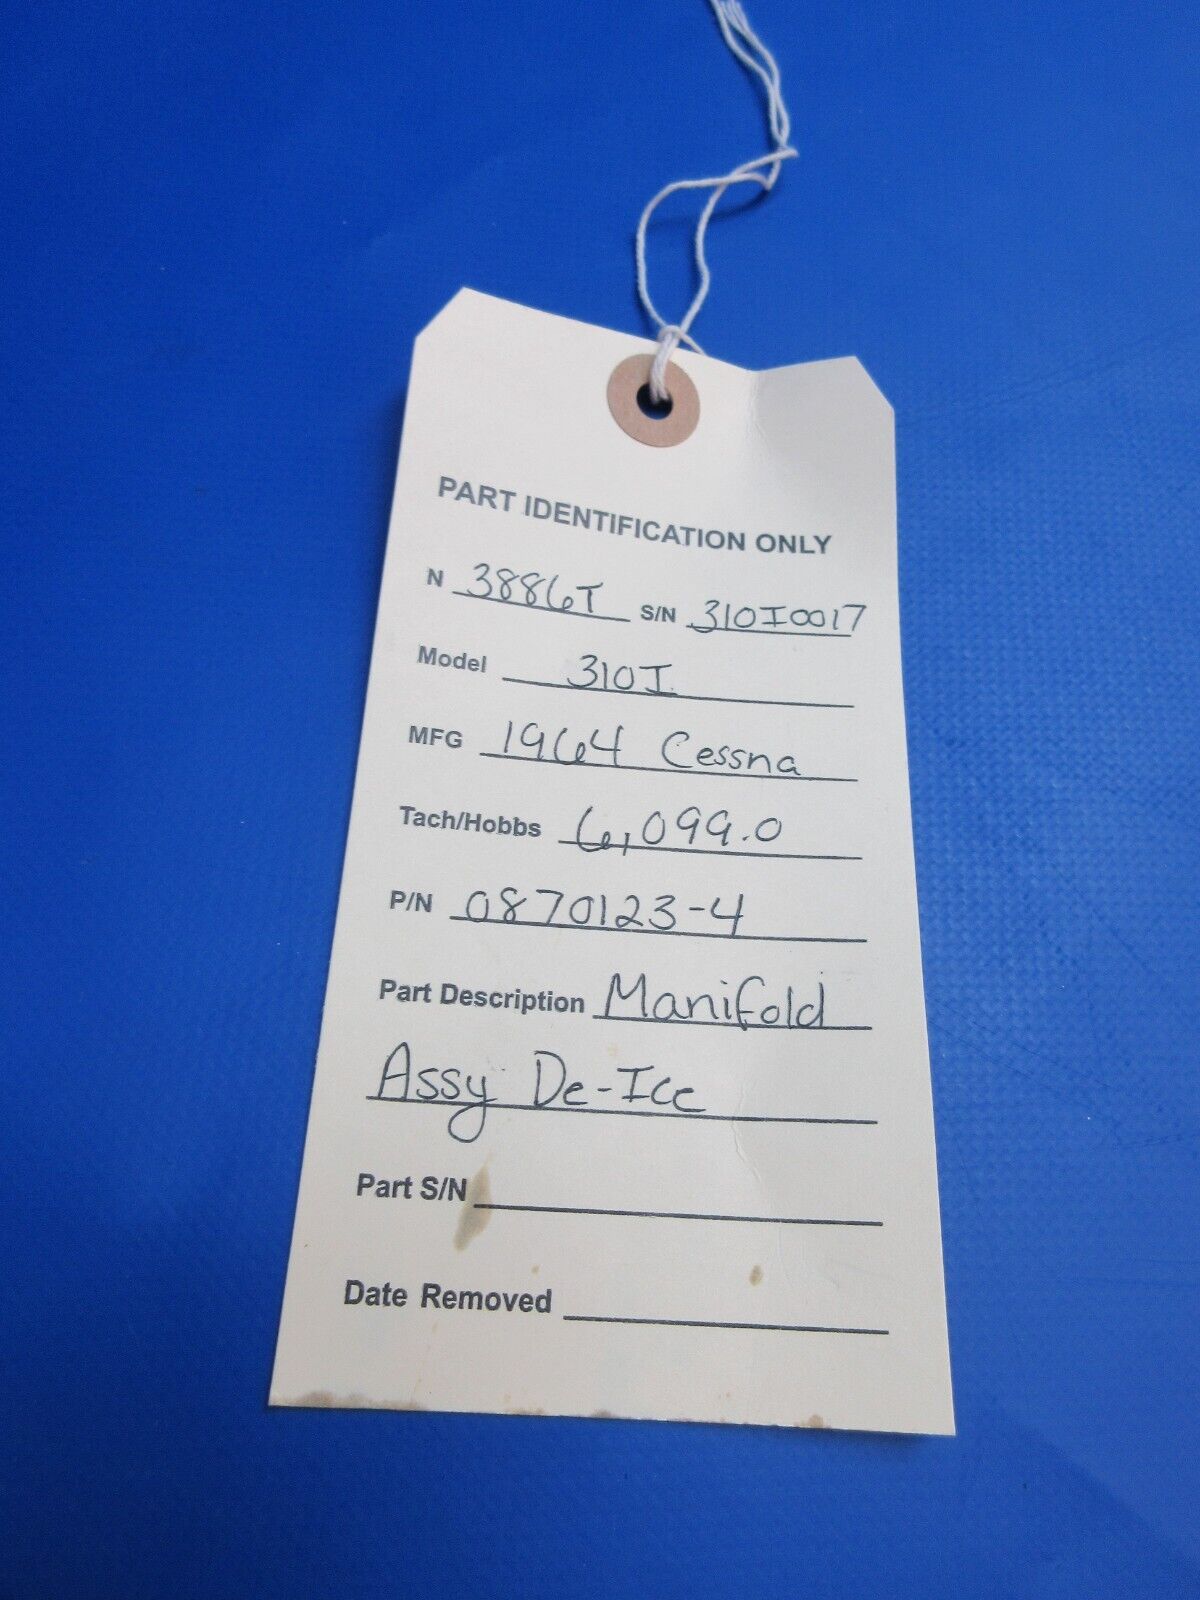 PART IDENTIFICATION ONLY
N 3886T S/N 310I0017
Model 310I
MFG 1964 Cessna
Tach/Hobbs 6,099.0
P/N 0870123-4
Part Description Manifold
Assy De-Ice
Part S/N
Date Removed